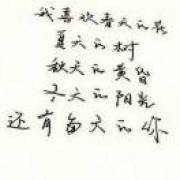 我喜欢春天的花
夏天的树
秋天的黄昏
冬天的阳光
还有每天的你